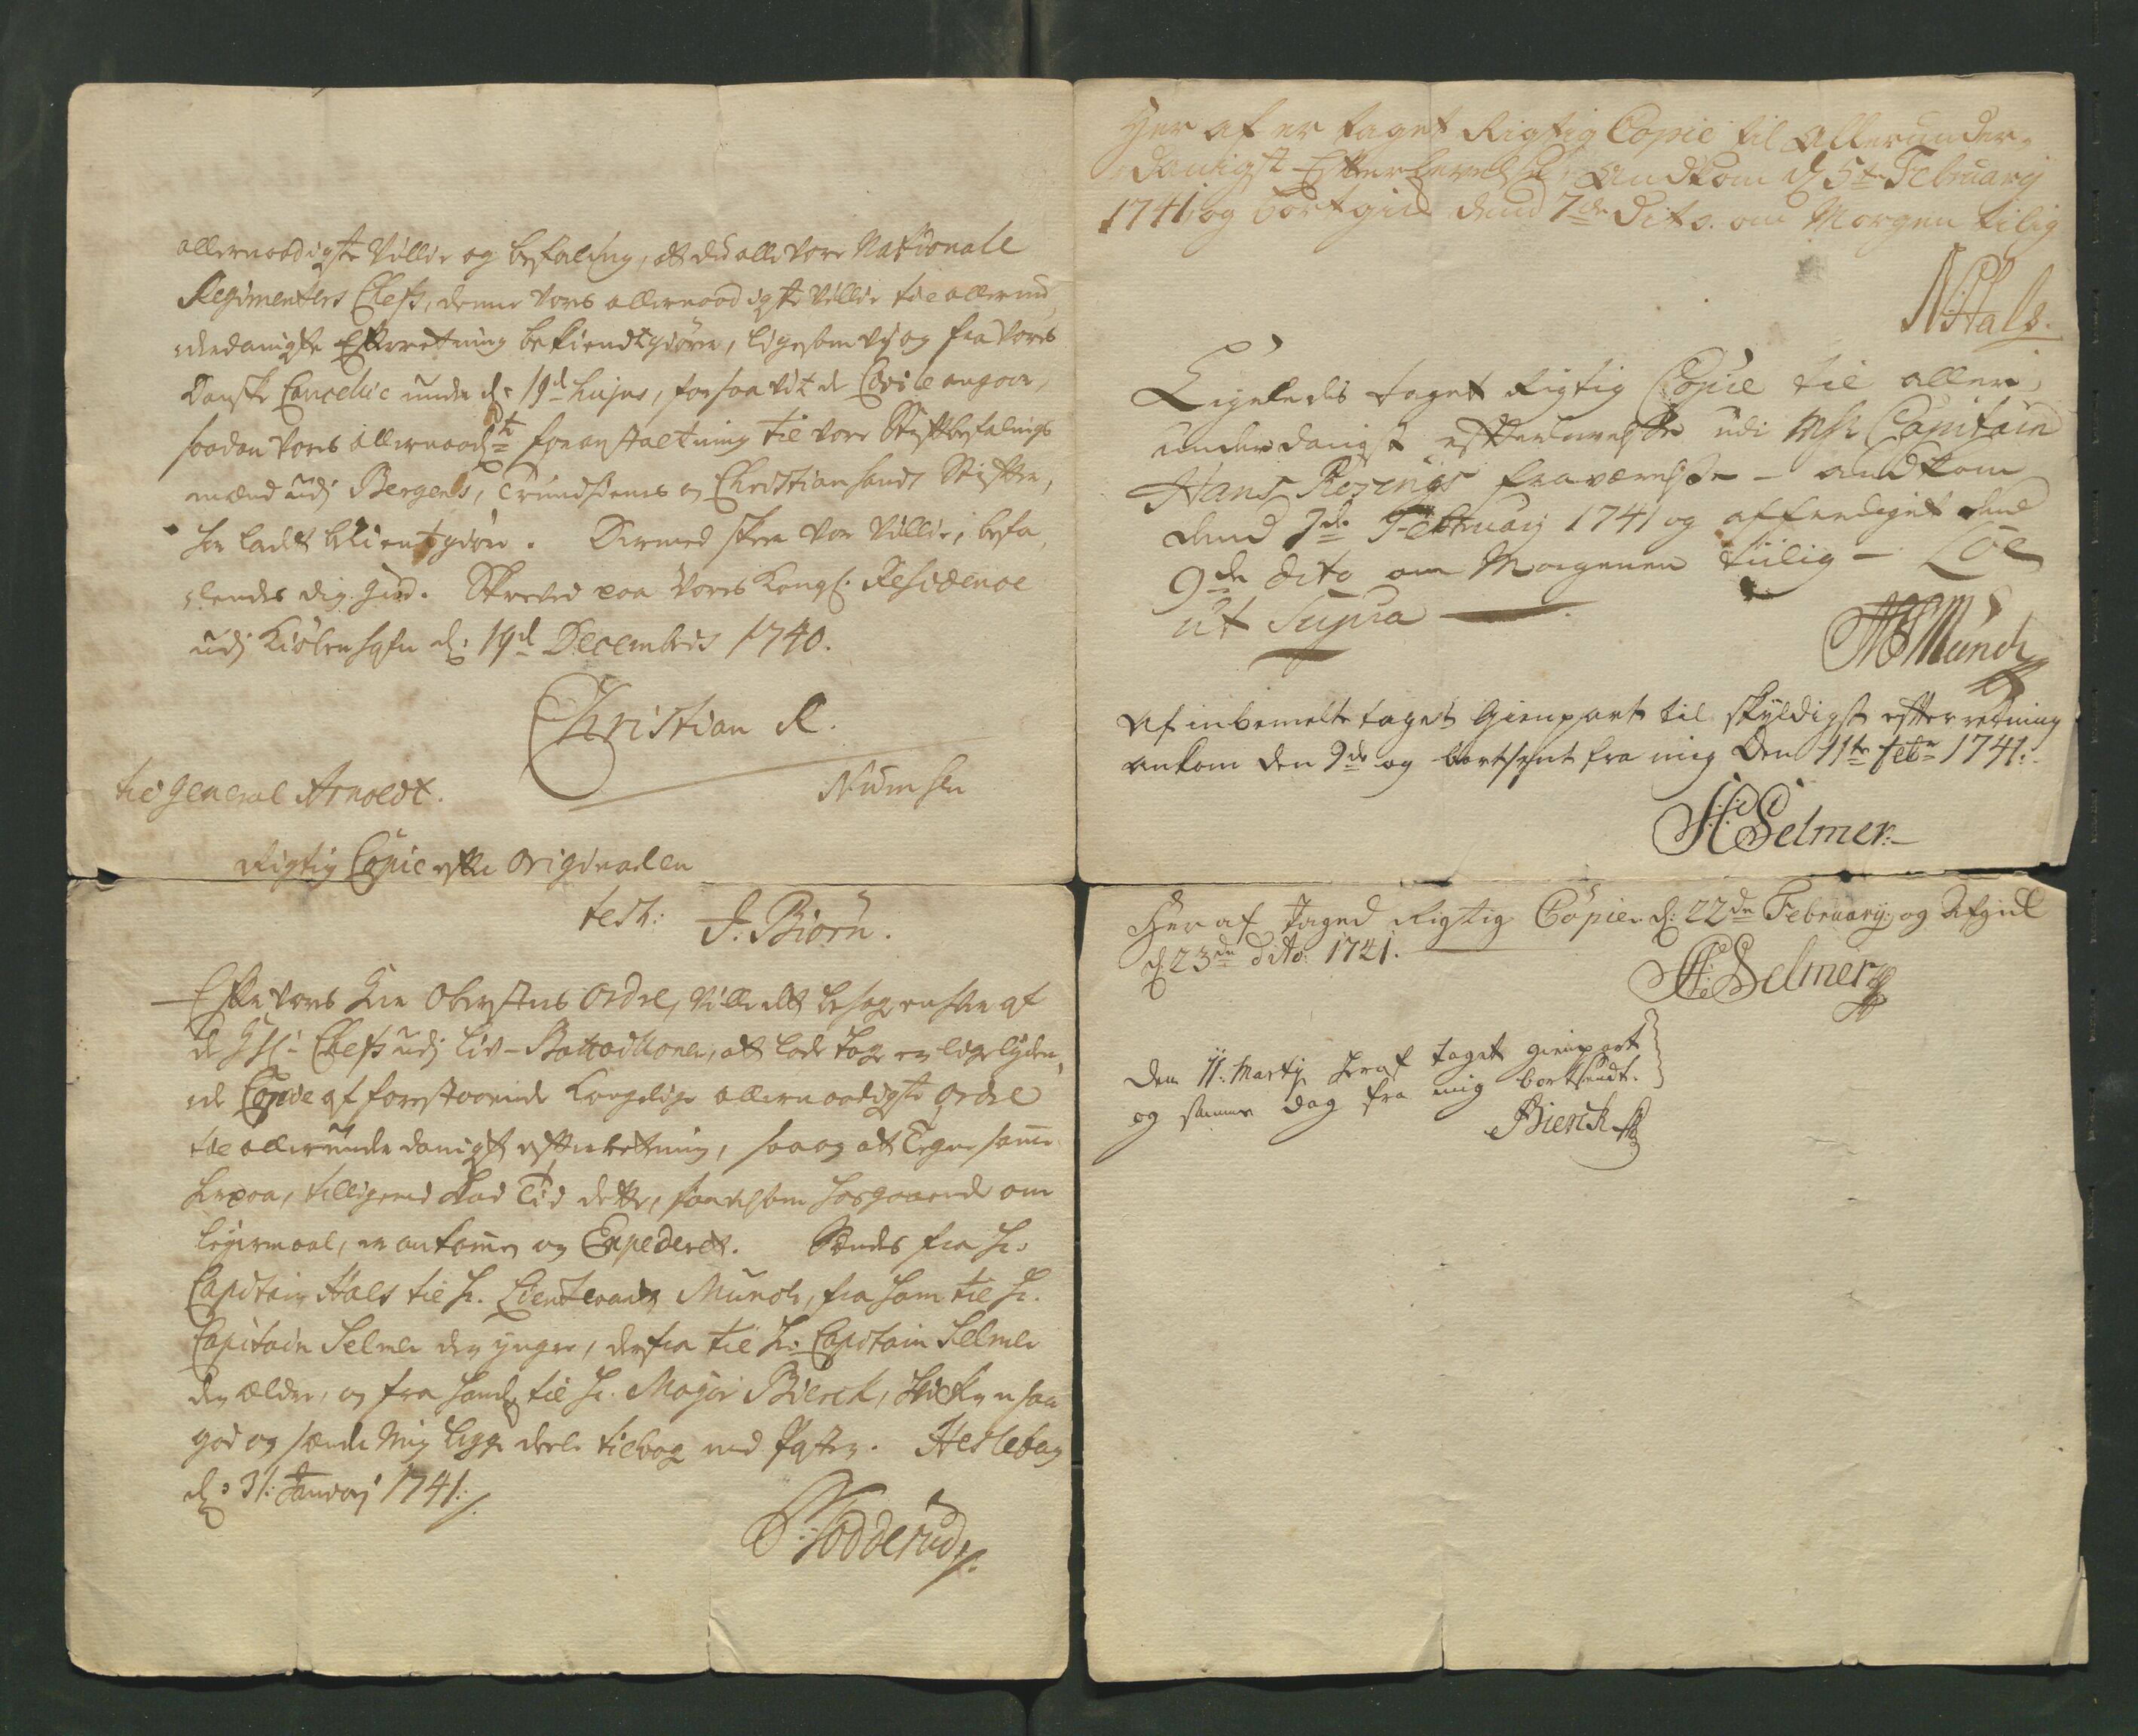 allernaadigste Villie og befaling, at du alle vore Nationale
Regimenters Chefs, denne vores allernaadigste Villie til allerun¬
derdanigste Efterretning bekiendtgiører, ligesom vi og fra vores
Danske Cancellie under d: 19d hujus, for saavit de Civile angaar,
saadan vores allernaadste foranstaltning til vore Stiftbefalings
mænd udj Bergens, Trundhiems og Christiansands Stifter,
har ladet bekientgiøre. Dermed skeer vor Villie, befa¬
lendes dig Gud. Skrevet paa Vores Kongl: Residence
udj Kiøbenhafn d: 19d Decembris 1740.
Christian R.
Numsen
til General Arnoldt.
Rigtig Copie efter Originalen
test: J. Biørn.
Efter vores Herr Oberstes Ordre, Ville
de Hrr: Chefs udj Liv-Battaillonen, at lade tage en ligelyden¬
de Copie af forestaaende Kongelige allernaadigste Ordre
til allerunderdanigst efterretning, saa og at Tegne samme
herpaa, tilligemed hvad Tid dette, saavelsom hosgaaende om
leyermaal, er ankommen og Expederet. Sendes fra Hr.
Capitain Hals til Hr. Lieutenant Munch, fra ham til Hr.
Capitain Selmer den yngre, derfra til Hr. Capitain Selmer
den ældre, og fra ham til Hr. Major Bierck, som er saa
god og sende mig begge deele tilbage med Posten.
d: 31: Januarj 1741.
Her af er taget Rigtig Copie til Allerunder¬
danigst Efterlevelse, Andkom d 5te February
1741, og bortgik dend 7de dito. om Morgen tilig
N Hals.
Ligeledis taget Rigtig Copie til aller¬
underdanigst efterlevelse udi Msr Capitain
Hans Fraværelse - andkom
dend 7de February 1741 og afferdiget dend
9de dito om Morgenen tiilig - Loe
ut Supra
Munch
Af inbemelte taget Gienpart til skyldigst efterretning
ankom den 9de og bortsent fra mig Den 11te febr 1741.
H Selmer.
Her af Taged Rigtig Copie d: 22de February, og Afgik
d: 23de dito: 1741.
Selmer
Den 11. Martij heraf taget gienpart
og samme dag fra mig bortsendt.
Bierck